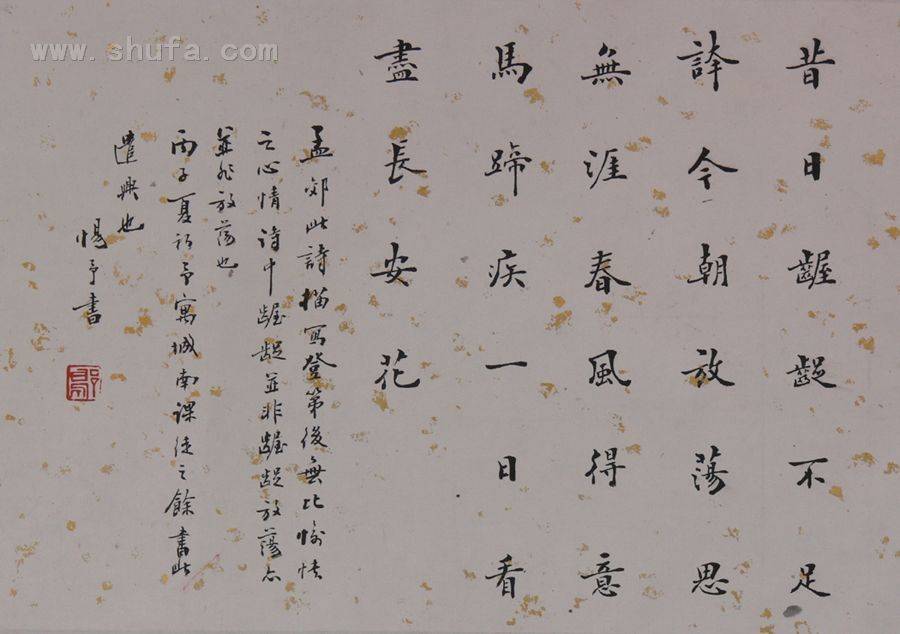 昔日齷齪不足
誇今朝放蕩思
無涯春風得意
馬蹄疾一日看
盡長安花
孟郊此詩描寫登第後無比愉快
之心情詩中齷齪並非齷齪放蕩亦
並非放蕩也
丙子夏初予寓城南課徒之餘書此
遣興也
惕予書
www.shufa.com